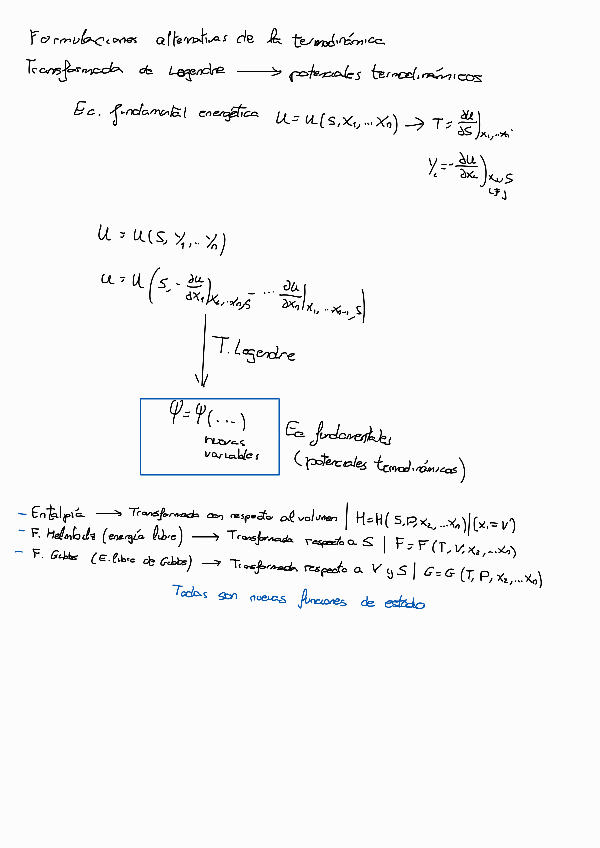 Formulaciones alternativas de la termodinámica
Transformada de Legendre → potenciales termodinámicos
Ec. fundamental energética U = U(S, X₁, ... Xn) → T = ∂U/∂S)x₁,...xn
Yᵢ = -∂U/∂xᵢ)xⱼ, S
i≠j
U = U(S, Y₁, ... Yn)
U = U(S, -∂U/∂x₁|x₂,...xn,S - ... ∂U/∂xn|x₁,...xn-1,S)
T. Legendre
Ψ = Ψ(...)
nuevas
variables
Ec fundamentales
(potenciales termodinámicos)
- Entalpía → Transformada con respecto al volumen | H=H(S,P,x₂,...xn)|(x₁=V)
- F. Helmholtz (energía libre) → Transformada respecto a S | F=F(T,V,x₂,...xn)
- F. Gibbs (E. libre de Gibbs) → Transformada respecto a V y S | G=G(T,P,x₂,...xn)
Todas son nuevas funciones de estado